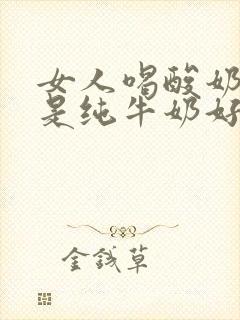 女人喝酸奶
是纯牛奶好
金钱草